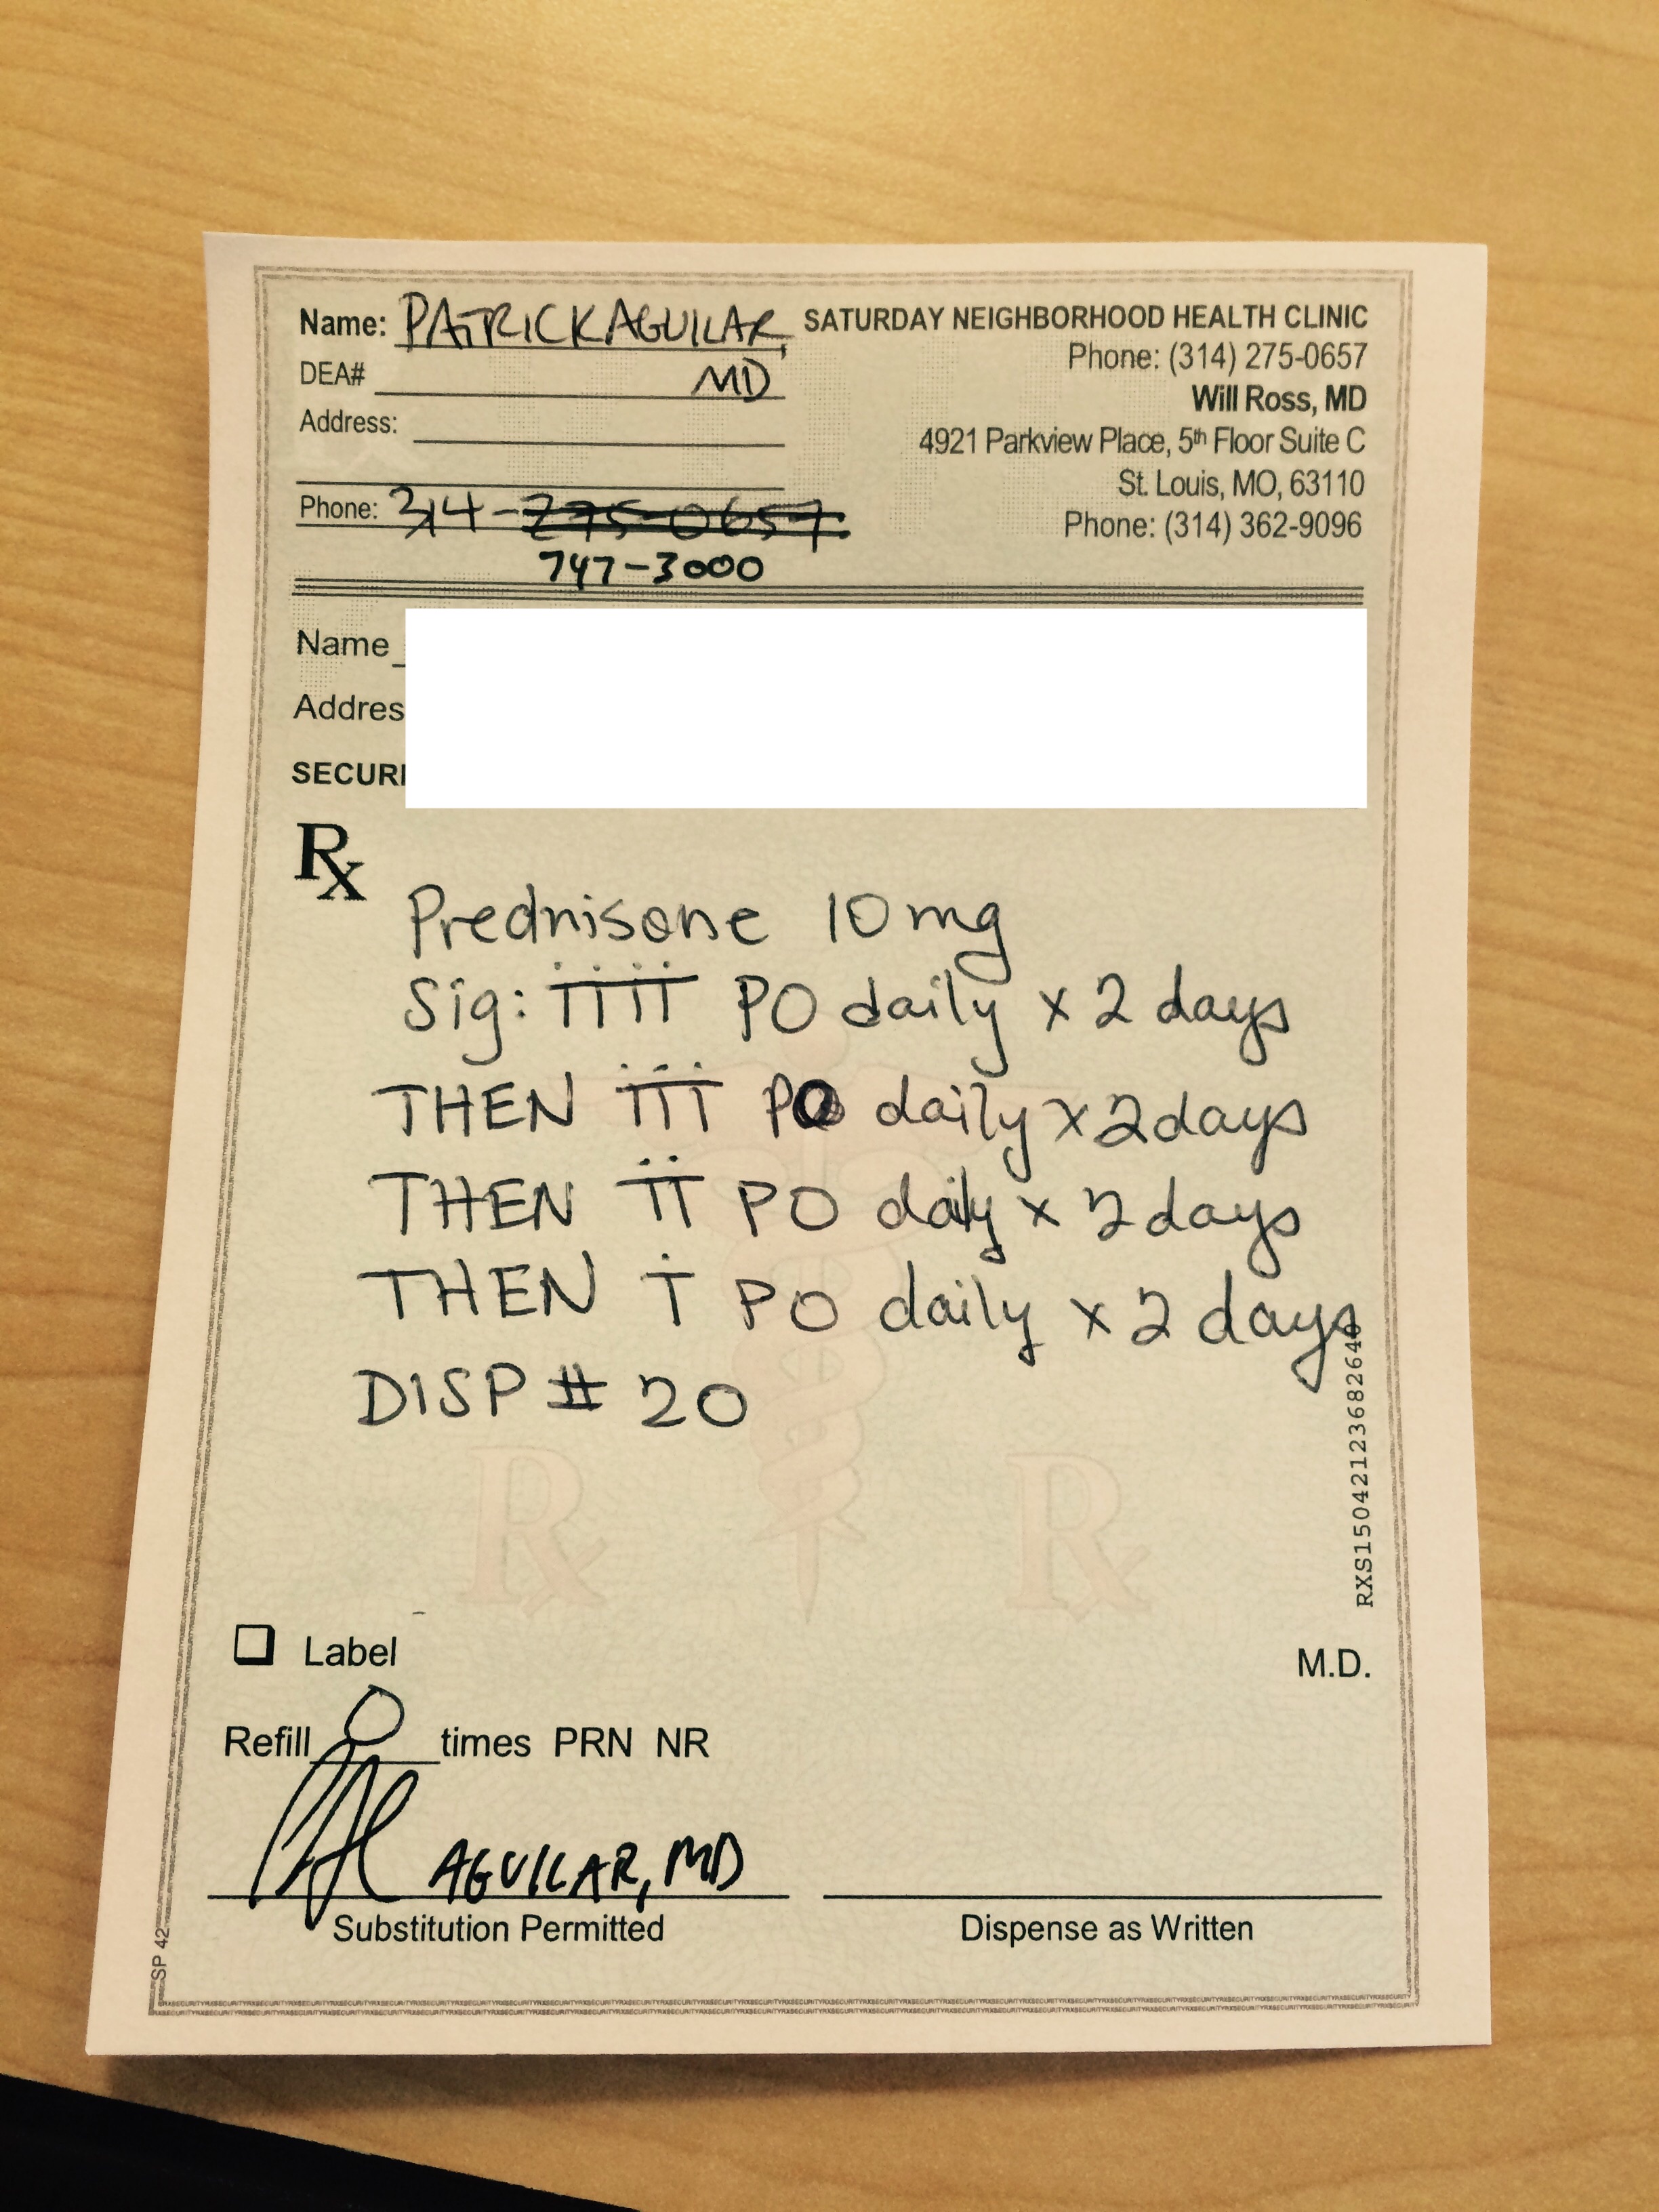 Name: PATRICK AGUILAR,
MD
DEA#
Address:
Phone: 314-275-0657
747-3000
SATURDAY NEIGHBORHOOD HEALTH CLINIC
Phone: (314) 275-0657
Will Ross, MD
4921 Parkview Place, 5th Floor Suite C
St. Louis, MO, 63110
Phone: (314) 362-9096
Name
Addres
SECURI
Rx
Prednisone 10mg
Sig: iiii PO daily x 2 days
THEN iii PO daily x 2 days
THEN ii PO daily x 2 days
THEN i PO daily x 2 days
DISP # 20
RXS1504212368264
Label
M.D.
Refill 0 times PRN NR
AGUILAR, MD
Substitution Permitted
Dispense as Written
SP 42